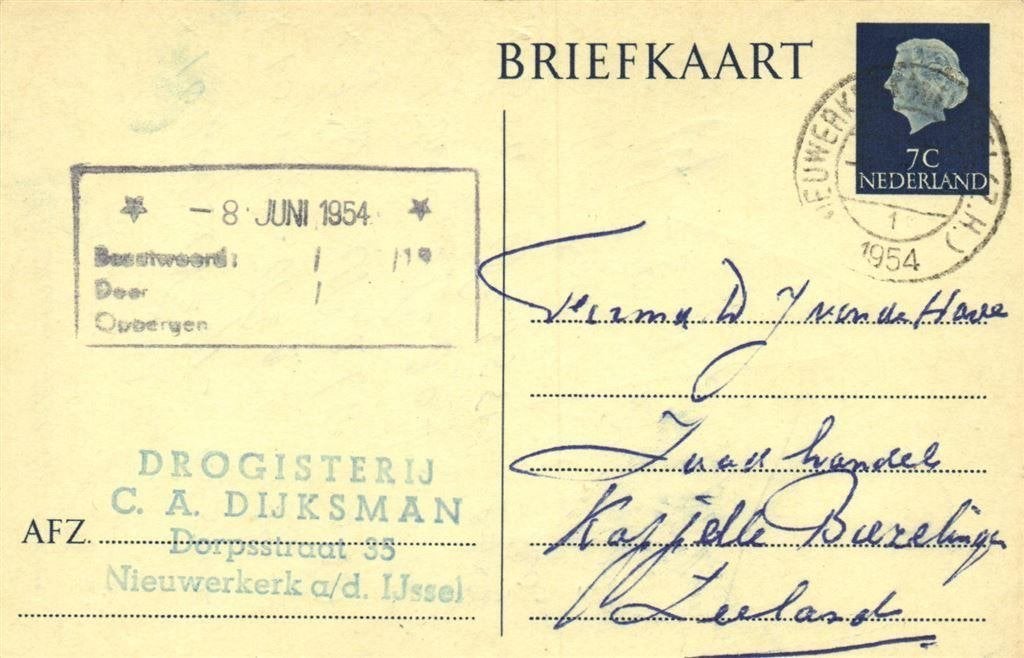 BRIEFKAART
7C
NEDERLAND
NIEUWERK
(Z.H.)
1
1954
- 8 JUNI 1954
Beantwoord: / /19
Door /
Opbergen
Firma D J van de Have
Zaadhandel
Kapelle Biezelinge
Zeeland
DROGISTERIJ
C. A. DIJKSMAN
AFZ.
Dorpsstraat 35
Nieuwerkerk a/d. IJssel